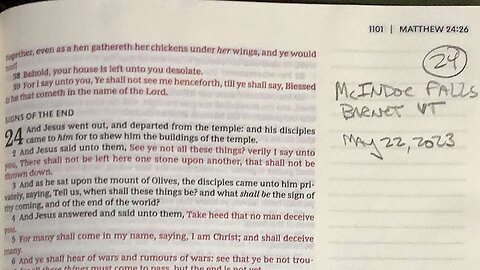 together, even as a hen gathereth her chickens under her wings, and ye would
not!
38 Behold, your house is left unto you desolate.
39 For I say unto you, Ye shall not see me henceforth, till ye shall say, Blessed
is he that cometh in the name of the Lord.
SIGNS OF THE END
24 And Jesus went out, and departed from the temple: and his disciples
came to him for to shew him the buildings of the temple.
2 And Jesus said unto them, See ye not all these things? verily I say unto
you, There shall not be left here one stone upon another, that shall not be
thrown down.
3 And as he sat upon the mount of Olives, the disciples came unto him pri-
vately, saying, Tell us, when shall these things be? and what shall be the sign of
thy coming, and of the end of the world?
4 And Jesus answered and said unto them, Take heed that no man deceive
you.
5 For many shall come in my name, saying, I am Christ; and shall deceive
many.
6 And ye shall hear of wars and rumours of wars: see that ye be not trou-
for all these things must come to pass, but the end is not yet.
1101 | MATTHEW 24:26
24
McINDOE FALLS
BARNET VT
MAY 22, 2023